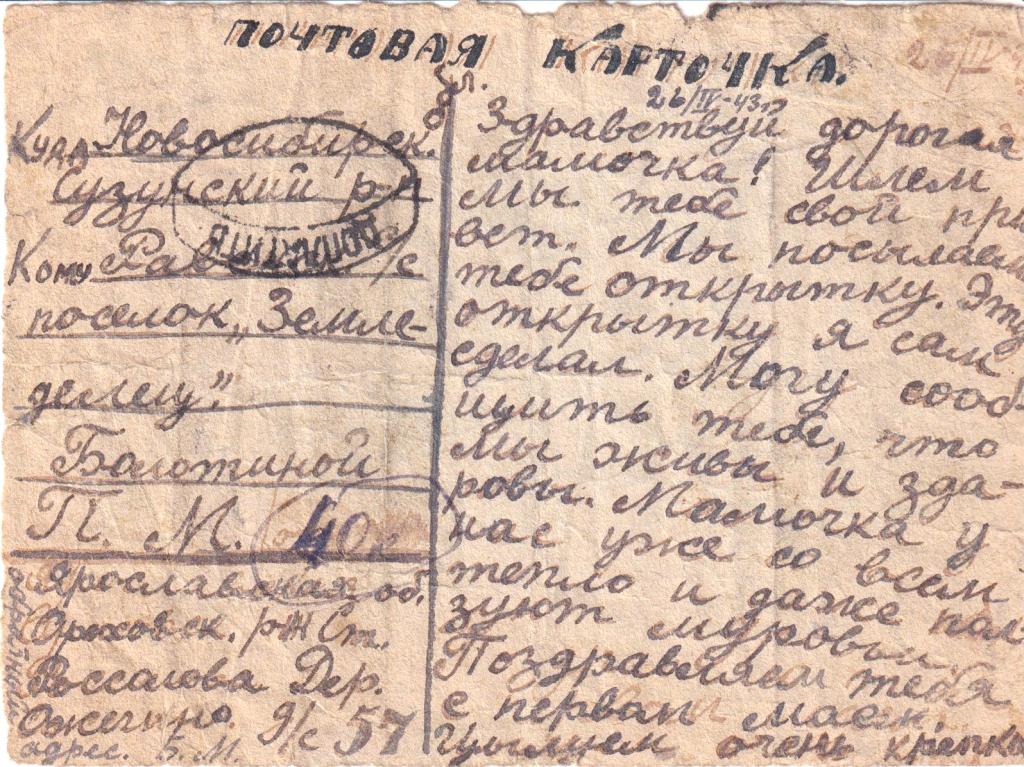 ПОЧТОВАЯ КАРТОЧКА.
26/IV-43г
Куда Новосибирск.
обл.
Сузунский р-н
Кому Рав с/с
поселок „Земле-
делец".
Болотиной
П. М.
40к
Ярославская об.
ст.
Россалова Дер.
Ожегино д/с 57
адрес. Б. М.
Здравствуй дорогая
мамочка! Шлем
мы тебе свой при
вет. Мы посылаем
тебе открытку. Эту
открытку я сам
сделал. Могу сооб-
щить тебе, что
мы живы и здо-
ровы. Мамочка у
нас уже со всем
тепло и даже пол-
зуют муровьи.
Поздравляем тебя
с первам маем.
Цылуем очень крепко